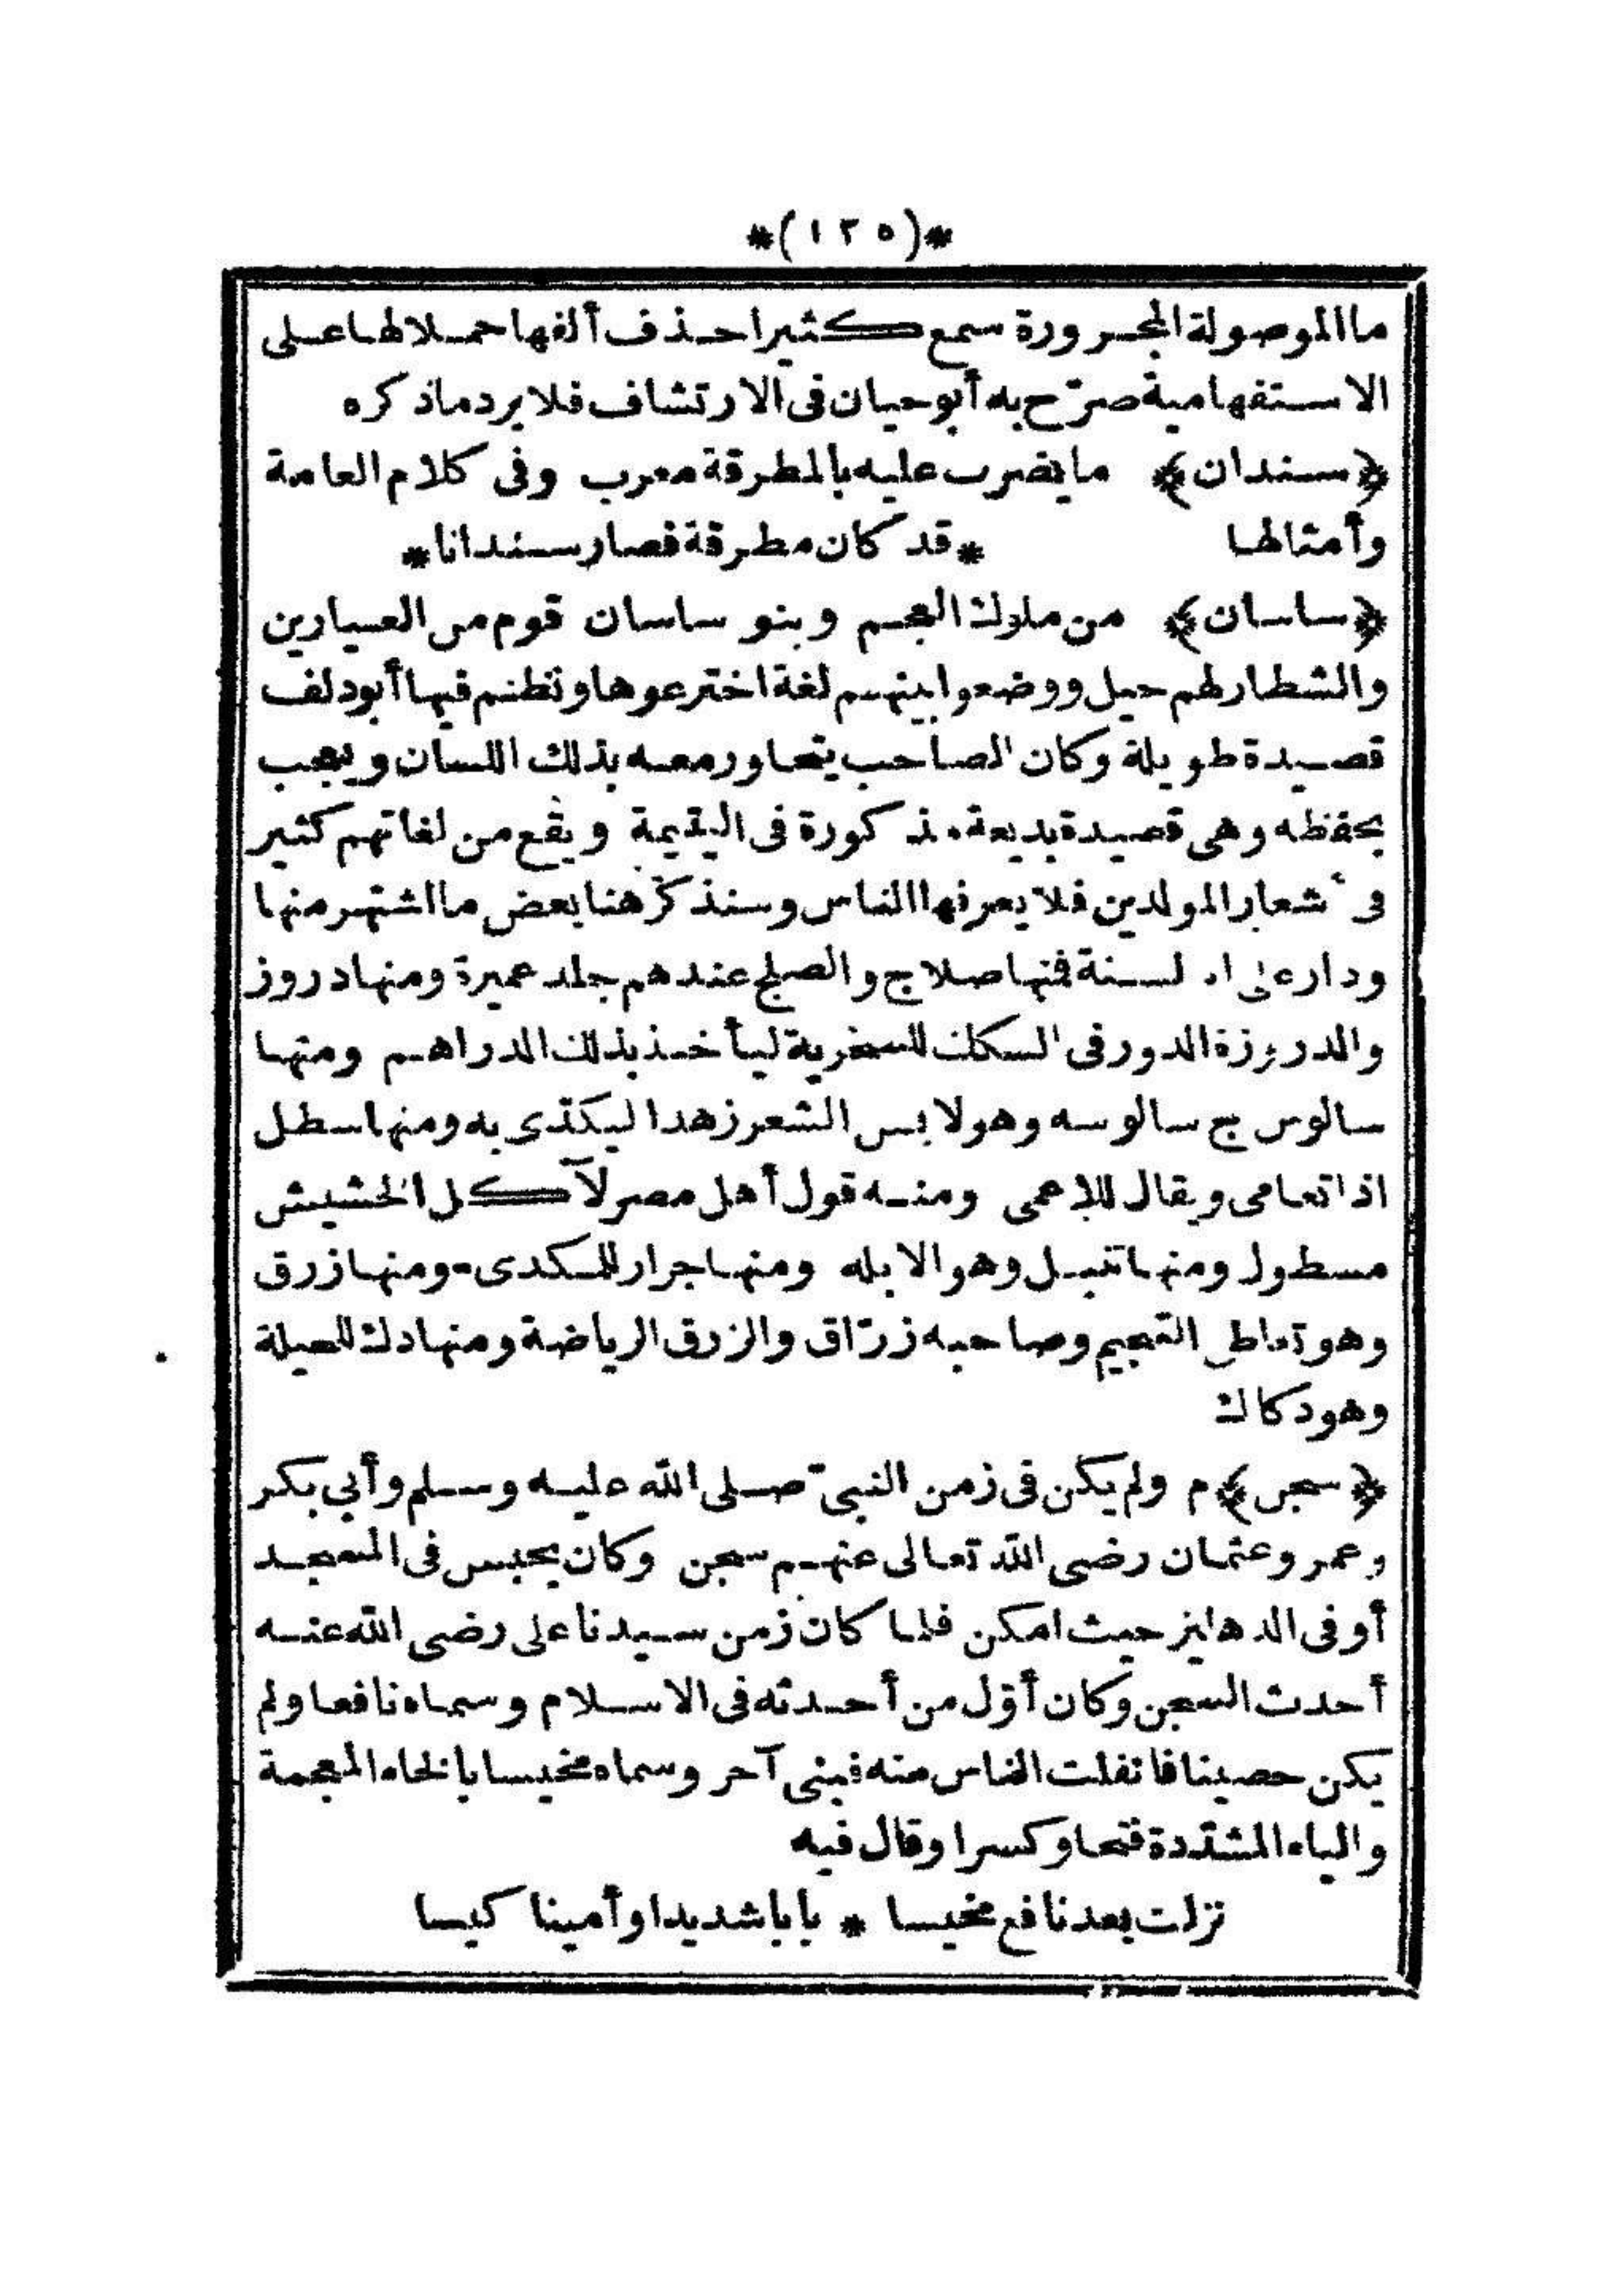 *(١٢٥)*
ما الموصولة المجرورة سمع كثيرا حذف ألفها حملا لها على
الاستفهامية صرّح به أبو حيان فى الارتشاف فلا يرد ماذكره
﴿سندان﴾ ما يضرب عليه بالمطرقة معرب وفى كلام العامة
وأمثالها *قد كان مطرقة فصار سندانا*
﴿ساسان﴾ من ملوك العجم وبنو ساسان قوم من العيارين
والشطار لهم حيل ووضعوا بينهم لغة اخترعوها ونظم فيها أبو دلف
قصيدة طويلة وكان الصاحب يتحاور معه بذلك اللسان ويعجب
بحفظه وهى قصيدة بديعة مذكورة فى اليتيمة ويقع من لغاتهم كثير
فى أشعار المولدين فلا يعرفها الناس وسنذكر هنا بعض ما اشتهر منها
ودار على الالسنة فمنها صلاج والصلج عندهم جلد عميرة ومنها دروز
والدروزة الدور فى السكك للسخرية ليأخذ بذلك الدراهم ومنها
سالوس ج سالوسه وهو لابس الشعر زهدا ليكدّى به ومنها سطل
اذا تعامى ويقال للاعمى ومنه قول أهل مصر لآكل الحشيش
مسطول ومنها تنبل وهو الابله ومنها جرار للمكدى ومنها زرق
وهو تعاطى التنجيم وصاحبه زرّاق والزرق الرياضة ومنها دك للحيلة
وهو دكاك
﴿سجن﴾ م ولم يكن فى زمن النبىّ صلى الله عليه وسلم وأبي بكر
وعمر وعثمان رضى الله تعالى عنهم سجن وكان يحبس فى المسجد
أو فى الدهليز حيث امكن فلما كان زمن سيدنا على رضى الله عنه
أحدث السجن وكان أوّل من أحدثه فى الاسلام وسماه نافعا ولم
يكن حصينا فانفلت الناس منه فبنى آخر وسماه مخيسا بالخاء المعجمة
والياء المشدّدة فتحا وكسرا وقال فيه
نزلت بعد نافع مخيسا * بابا شديدا وأمينا كيسا